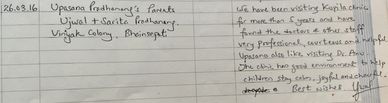 26.03.16
Upasana Pradhanang's Parents
Ujwal + Sarita Pradhanang
Vinayak Colony, Bhaisepati
We have been visiting Kupila clinic
for more than 5 years and have
found the doctors & other staff
very professional, courteous and helpful.
Upasana also like visiting Dr. Anu.
The clinic has good environment to help
children stay calm, joyful and cheerful
Best wishes